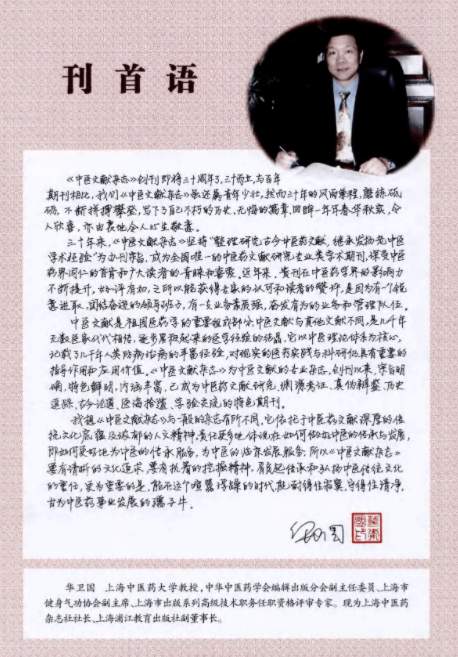 刊首语
《中医文献杂志》创刊即将三十周年了,三十而立,与百年
期刊相比,我们《中医文献杂志》虽还属青年少壮,然而三十年的风雨兼程,磨练砥
砺,不断拼搏攀登,写下了自己不朽的历史,无悔的篇章,回眸一年年春华秋实,令
人欣喜,亦由衷地令人心生敬意。
三十年来,《中医文献杂志》坚持“整理研究古今中医药文献,继承发扬光大中医
学术经验”为办刊宗旨,成为全国唯一的中医药文献研究专业类学术期刊,深受中医
药界同仁的首肯和广大读者的青睐和喜爱,近年来,贵刊在中医药学界的影响力
不断提升,好评有加,之所以能获得专家的认可和读者的赞誉,是因为有一个锐
意进取、团结奋进的领导班子,有一支业务素质强、奋发有为的业务和管理队伍。
中医文献是祖国医药学的重要组成部分,中医文献与其他文献不同,是几千年
无数医家代代相传、逐步累积起来的医学经验的结晶,它以中医理论体系为核心,
记载了几千年人类防病治病的丰富经验,对现实的医药实践与科研仍具有重要的
指导作用和应用价值。《中医文献杂志》为中医文献的专业杂志,创刊以来,宗旨明
确,特色鲜明,内涵丰富,已成为中医药文献研究、渊源考证、真伪辨鉴、历史
追踪、古今论道、医海拾遗、学验交流的特色期刊。
我想《中医文献杂志》与一般的杂志有所不同,它依托于中医药文献深厚的传
统文化底蕴及浓郁的人文精神,责任更多地体现在如何做好中医的传承与发展,
即如何更好地为中医的传承服务,为中医的临床发展服务,所以《中医文献杂志》
要有清晰的文化追求,要有执着的挖掘精神,肩负起传承和弘扬中医传统文化
的重任,更为重要的是,能在这个喧嚣浮躁的时代,能耐得住寂寞,守得住清净,
甘为中医药事业发展的孺子牛。
华卫国 上海中医药大学教授,中华中医药学会编辑出版分会副主任委员、上海市
健身气功协会副主席、上海市出版系列高级技术职务任职资格评审专家。现为上海中医药
杂志社社长、上海浦江教育出版社副董事长。